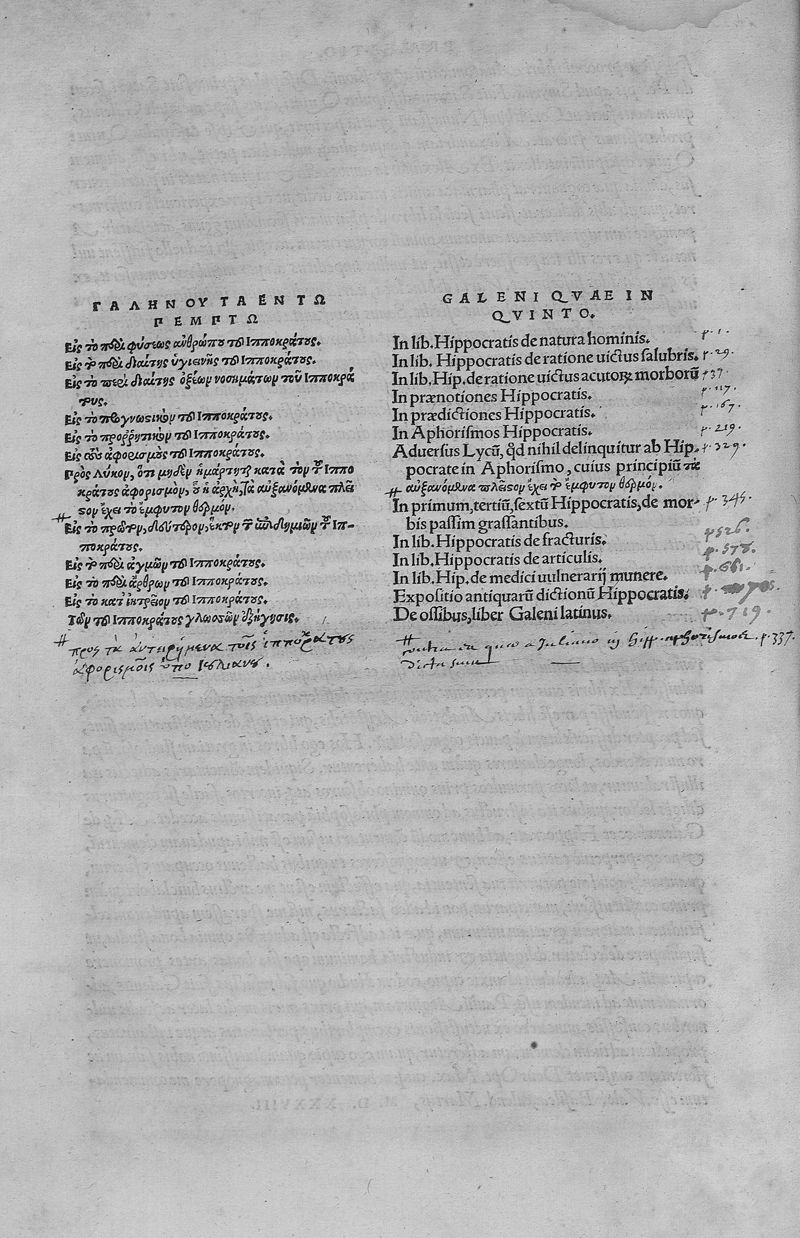 ΓΑΛΗΝΟΥ ΤΑ ΕΝ ΤΩ
ΠΕΜΠΤΩ
Εἰς τὸ περὶ φύσεως ἀνθρώπου τοῦ Ιπποκράτους.
Εἰς τὸ περὶ διαίτης ὑγιεινῆς τοῦ Ιπποκράτους.
Εἰς τὸ περὶ διαίτης ὀξέων νοσημάτων τοῦ Ιπποκρά
τους.
Εἰς τὸ προγνωστικὸν τοῦ Ιπποκράτους.
Εἰς τὸ προῤῥητικὸν τοῦ Ιπποκράτους.
Εἰς τοὺς ἀφορισμοὺς τοῦ Ιπποκράτους.
Πρὸς Λύκον, ὅτι μηδὲν ἥμαρτητς κατὰ τὸν τοῦ Ιππο
κράτους ἀφορισμὸν, οὗ ἡ ἀρχὴ, Τὰ αὐξανόμενα πλεῖ
στον ἔχει τὸ ἔμφυτον θερμόν.
Εἰς τὸ πρῶτον, δεύτερον, ἕκτον τῶν ἐπιδημιῶν τοῦ Ιπ-
ποκράτους.
Εἰς τὸ περὶ ἀγμῶν τοῦ Ιπποκράτους.
Εἰς τὸ περὶ ἄρθρων τοῦ Ιπποκράτους.
Εἰς τὸ κατ' ἰητρεῖον τοῦ Ιπποκράτους.
Τῶν τοῦ Ιπποκράτους γλωσσῶν ἐξήγησις.
# προς τὰ ἀντειρημένα τοῖς ἱπποκράτους
ἀφορισμοῖς ὑπὸ Ιουλιανοῦ.
GALENI QVAE IN
QVINTO.
In lib. Hippocratis de natura hominis. p. 1.
In lib. Hippocratis de ratione uictus salubris. p. 29.
In lib. Hip. de ratione uictus acutoꝝ morborũ p 37
In prænotiones Hippocratis. p. 117.
In prædictiones Hippocratis. p. 167.
In Aphorismos Hippocratis. p. 219.
Aduersus Lycũ, q̃d nihil delinquitur ab Hip. p. 329.
pocrate in Aphorismo, cuius principiũ τὰ
# αὐξανόμενα πλεῖστον ἔχει τὸ ἔμφυτον θερμόν.
In primum, tertiũ, sextũ Hippocratis, de mor- p. 345.
bis passim grassantibus.
In lib. Hippocratis de fracturis. p 526.
In lib. Hippocratis de articulis. p. 578.
In lib. Hip. de medici uulnerarij munere. p. 661.
Expositio antiquarũ dictionũ Hippocratis.
De ossibus, liber Galeni latinus. p. 719.
# contra ea quæ a Juliano in Hipp. aphorismos p. 337.
dicta sunt